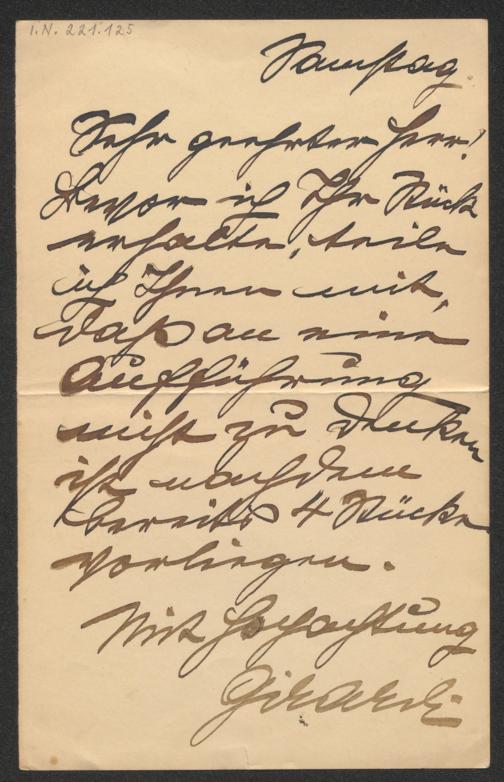 I.N. 221.125
Samstag.
Sehr geehrter Herr!
Bevor ich Ihr Stück
erhalte, teile
ich Ihnen mit,
daß an eine
Aufführung
nicht zu denken
ist nachdem
bereits 4 Stücke
vorliegen.
Mit Hochachtung
Girardi